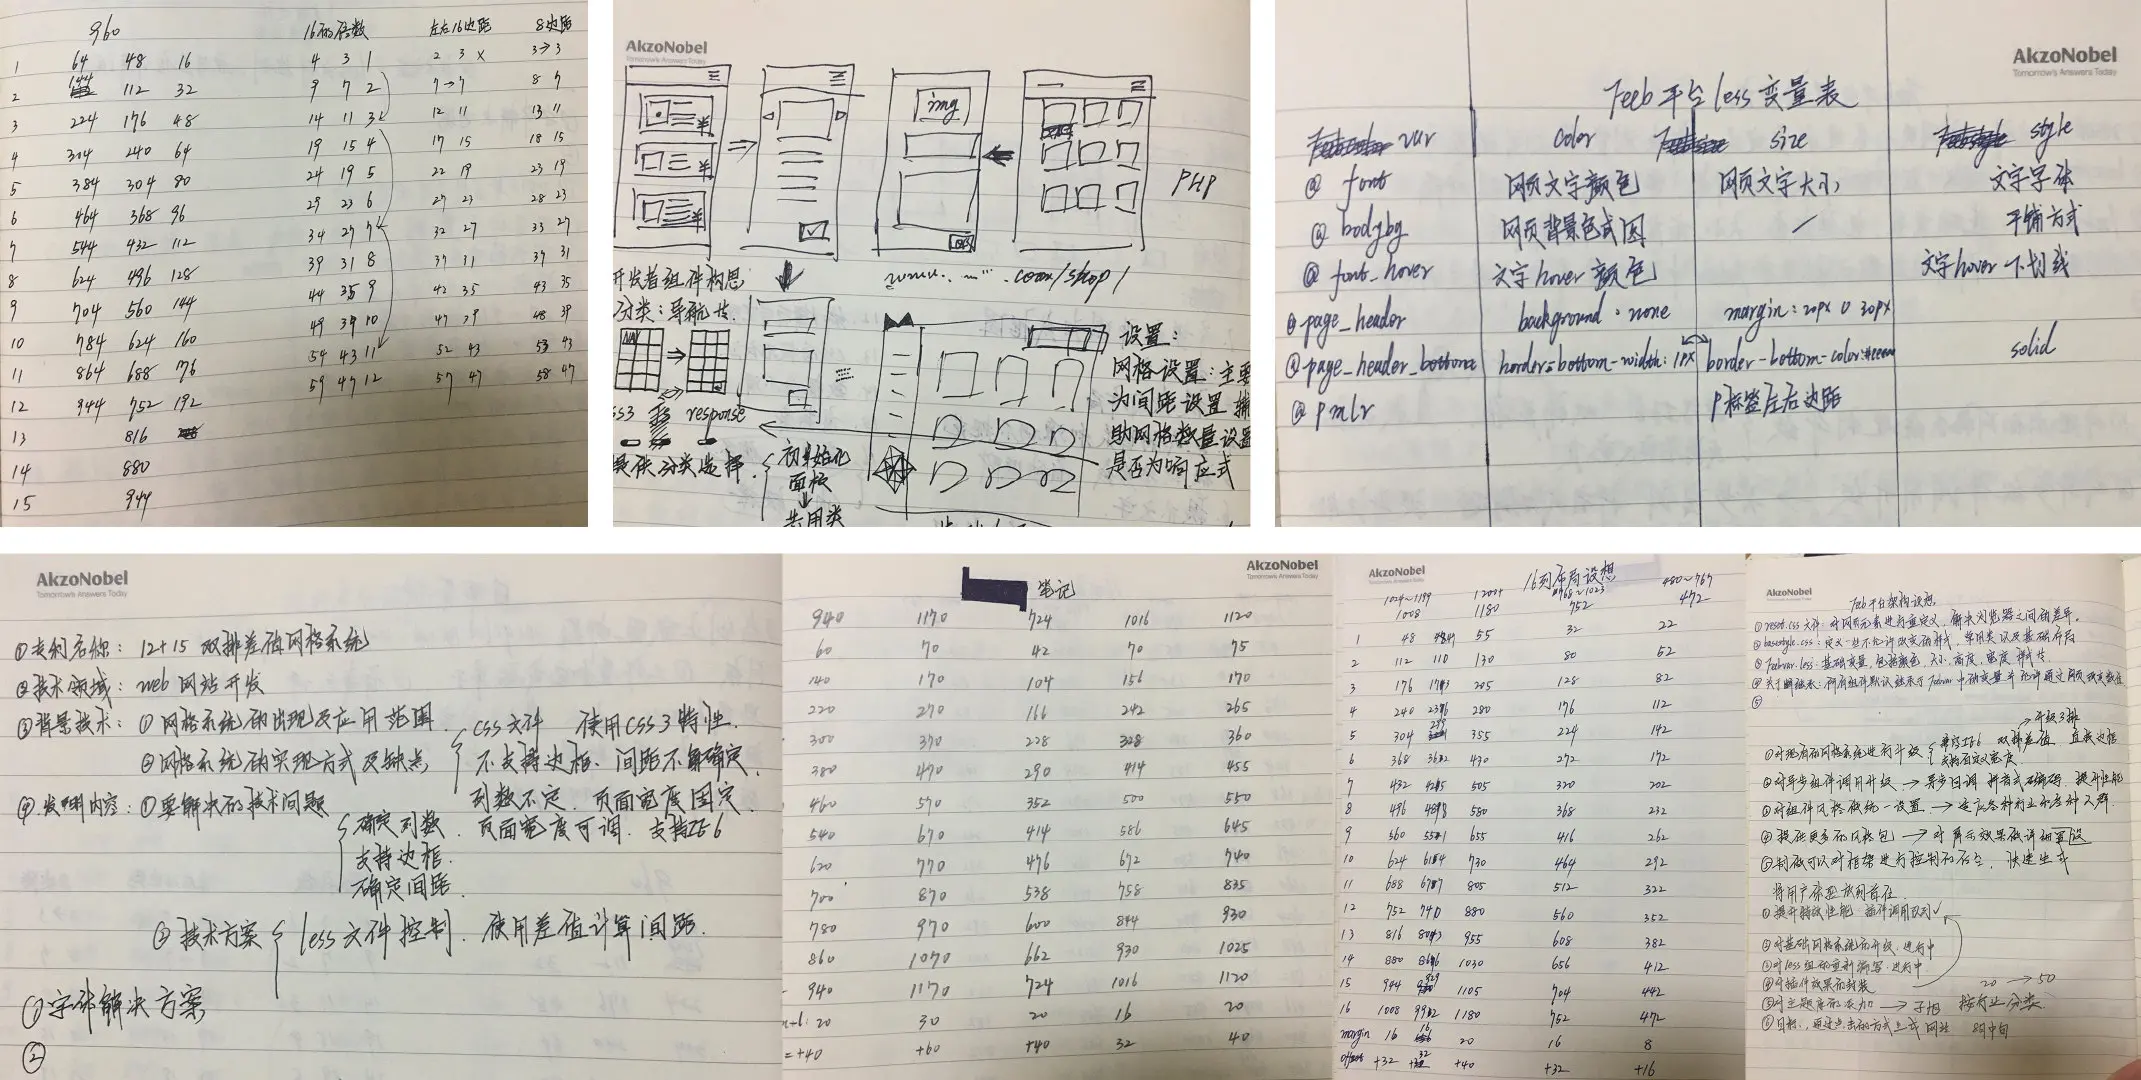 960 16的倍数 左右16边距 8边距
1 64 48 16 4 3 1 2 3 x 3→3
2 144 112 32 9 7 2 7→7 8 7
3 224 176 48 14 11 3 12 11 13 11
4 304 240 64 19 15 4 17 15 18 15
5 384 304 80 24 19 5 22 19 23 19
6 464 368 96 29 23 6 27 23 28 23
7 544 432 112 34 27 7 32 27 33 27
8 624 496 128 39 31 8 37 31 37 31
9 704 560 144 44 35 9 42 35 43 35
10 784 624 160 49 39 10 47 39 48 39
11 864 688 176 54 43 11 52 43 53 43
12 944 752 192 59 47 12 57 47 58 47
13 816
14 880
15 944
AkzoNobel
Tomorrow's Answers Today
img
PHP
.com/shop/
开发者组件构思
分类:导航 类.
NAV
response
提供分类选择.
初始化
面板
↓
共用类
设置:
网格设置:主要
为间距设置 辅
助网格数量设置
是否为响应式
AkzoNobel
Tomorrow's Answers Today
Feeb平台less变量表
var color size style
@ font 网页文字颜色 网页文字大小 文字字体
@ bodybg 网页背景色或图 / 平铺方式
@ font_hover 文字hover颜色 文字hover下划线
@ page_header background:none margin:20px 0 30px
@ page_header_bottom border-bottom-width:1px border-bottom-color:#eeeee solid
@ pmlr p标签左右边距
AkzoNobel
Tomorrow's Answers Today
①专利名称:12+15 双排差值网格系统
②技术领域:web网站开发
③背景技术:①网格系统的出现及应用范围.
②网格系统的实现方式及缺点
css文件 使用CSS3特性.
不支持边框、间距不算确定.
列数不定.页面宽度固定.
④发明内容:①要解决的技术问题
确定列数.页面宽度可调.支持IE6
支持边框.
确定间距.
②技术方案 less文件控制.使用差值计算间距.
①字体解决方案
②
AkzoNobel
Tomorrow's Answers Today
笔记
940 1170 724 1016 1120
60 70 42 70 75
140 170 104 156 170
220 270 166 242 265
300 370 228 328 360
380 470 290 414 455
460 570 352 500 550
540 670 414 586 645
620 770 476 672 740
700 870 538 758 835
780 970 600 844 930
860 1070 662 930 1025
940 1170 724 1016 1120
20 30 20 16 20
=+40 +60 +40 32 40
AkzoNobel
Tomorrow's Answers Today
16列布局设想
1024~1199 1200+ 768~1023 480~767
1008 1180 752 472
1 48 55 32 22
2 112 110 130 80 52
3 176 205 128 82
4 240 280 176 112
5 304 355 224 142
6 368 430 272 172
7 432 505 320 202
8 496 580 368 232
9 560 655 416 262
10 624 730 464 292
11 688 805 512 322
12 752 880 560 352
13 816 955 608 382
14 880 1030 656 412
15 944 1105 704 442
16 1008 1180 752 472
margin 16 16 20 16 8
+32 +32 +40 +32 +16
AkzoNobel
Tomorrow's Answers Today
Feeb平台架构设想
①reset.css文件:对网页元素进行重定义,解决浏览器之间的差异.
②basestyle.css:定义一些不允许改变的样式,常用类以及基础布局
③Feebvar.less:基础变量,包括颜色,大小,高度,宽度 样式等.
⑤
→升级3排
①对现有的网格系统进行升级 兼容IE6 双排差值
支持自定义宽度
②对异步组件调用升级 →异步回调
③对组件风格做统一设置 →适应各种行业和各种人群
④提供更多的风格包
将用户体验放到首位.
①提升特效性能 插件调用队列✓
②对基础网格系统的升级.进行中
③对less组的重新编写.进行中
④对插件效果的封装 20→50
按行业分类